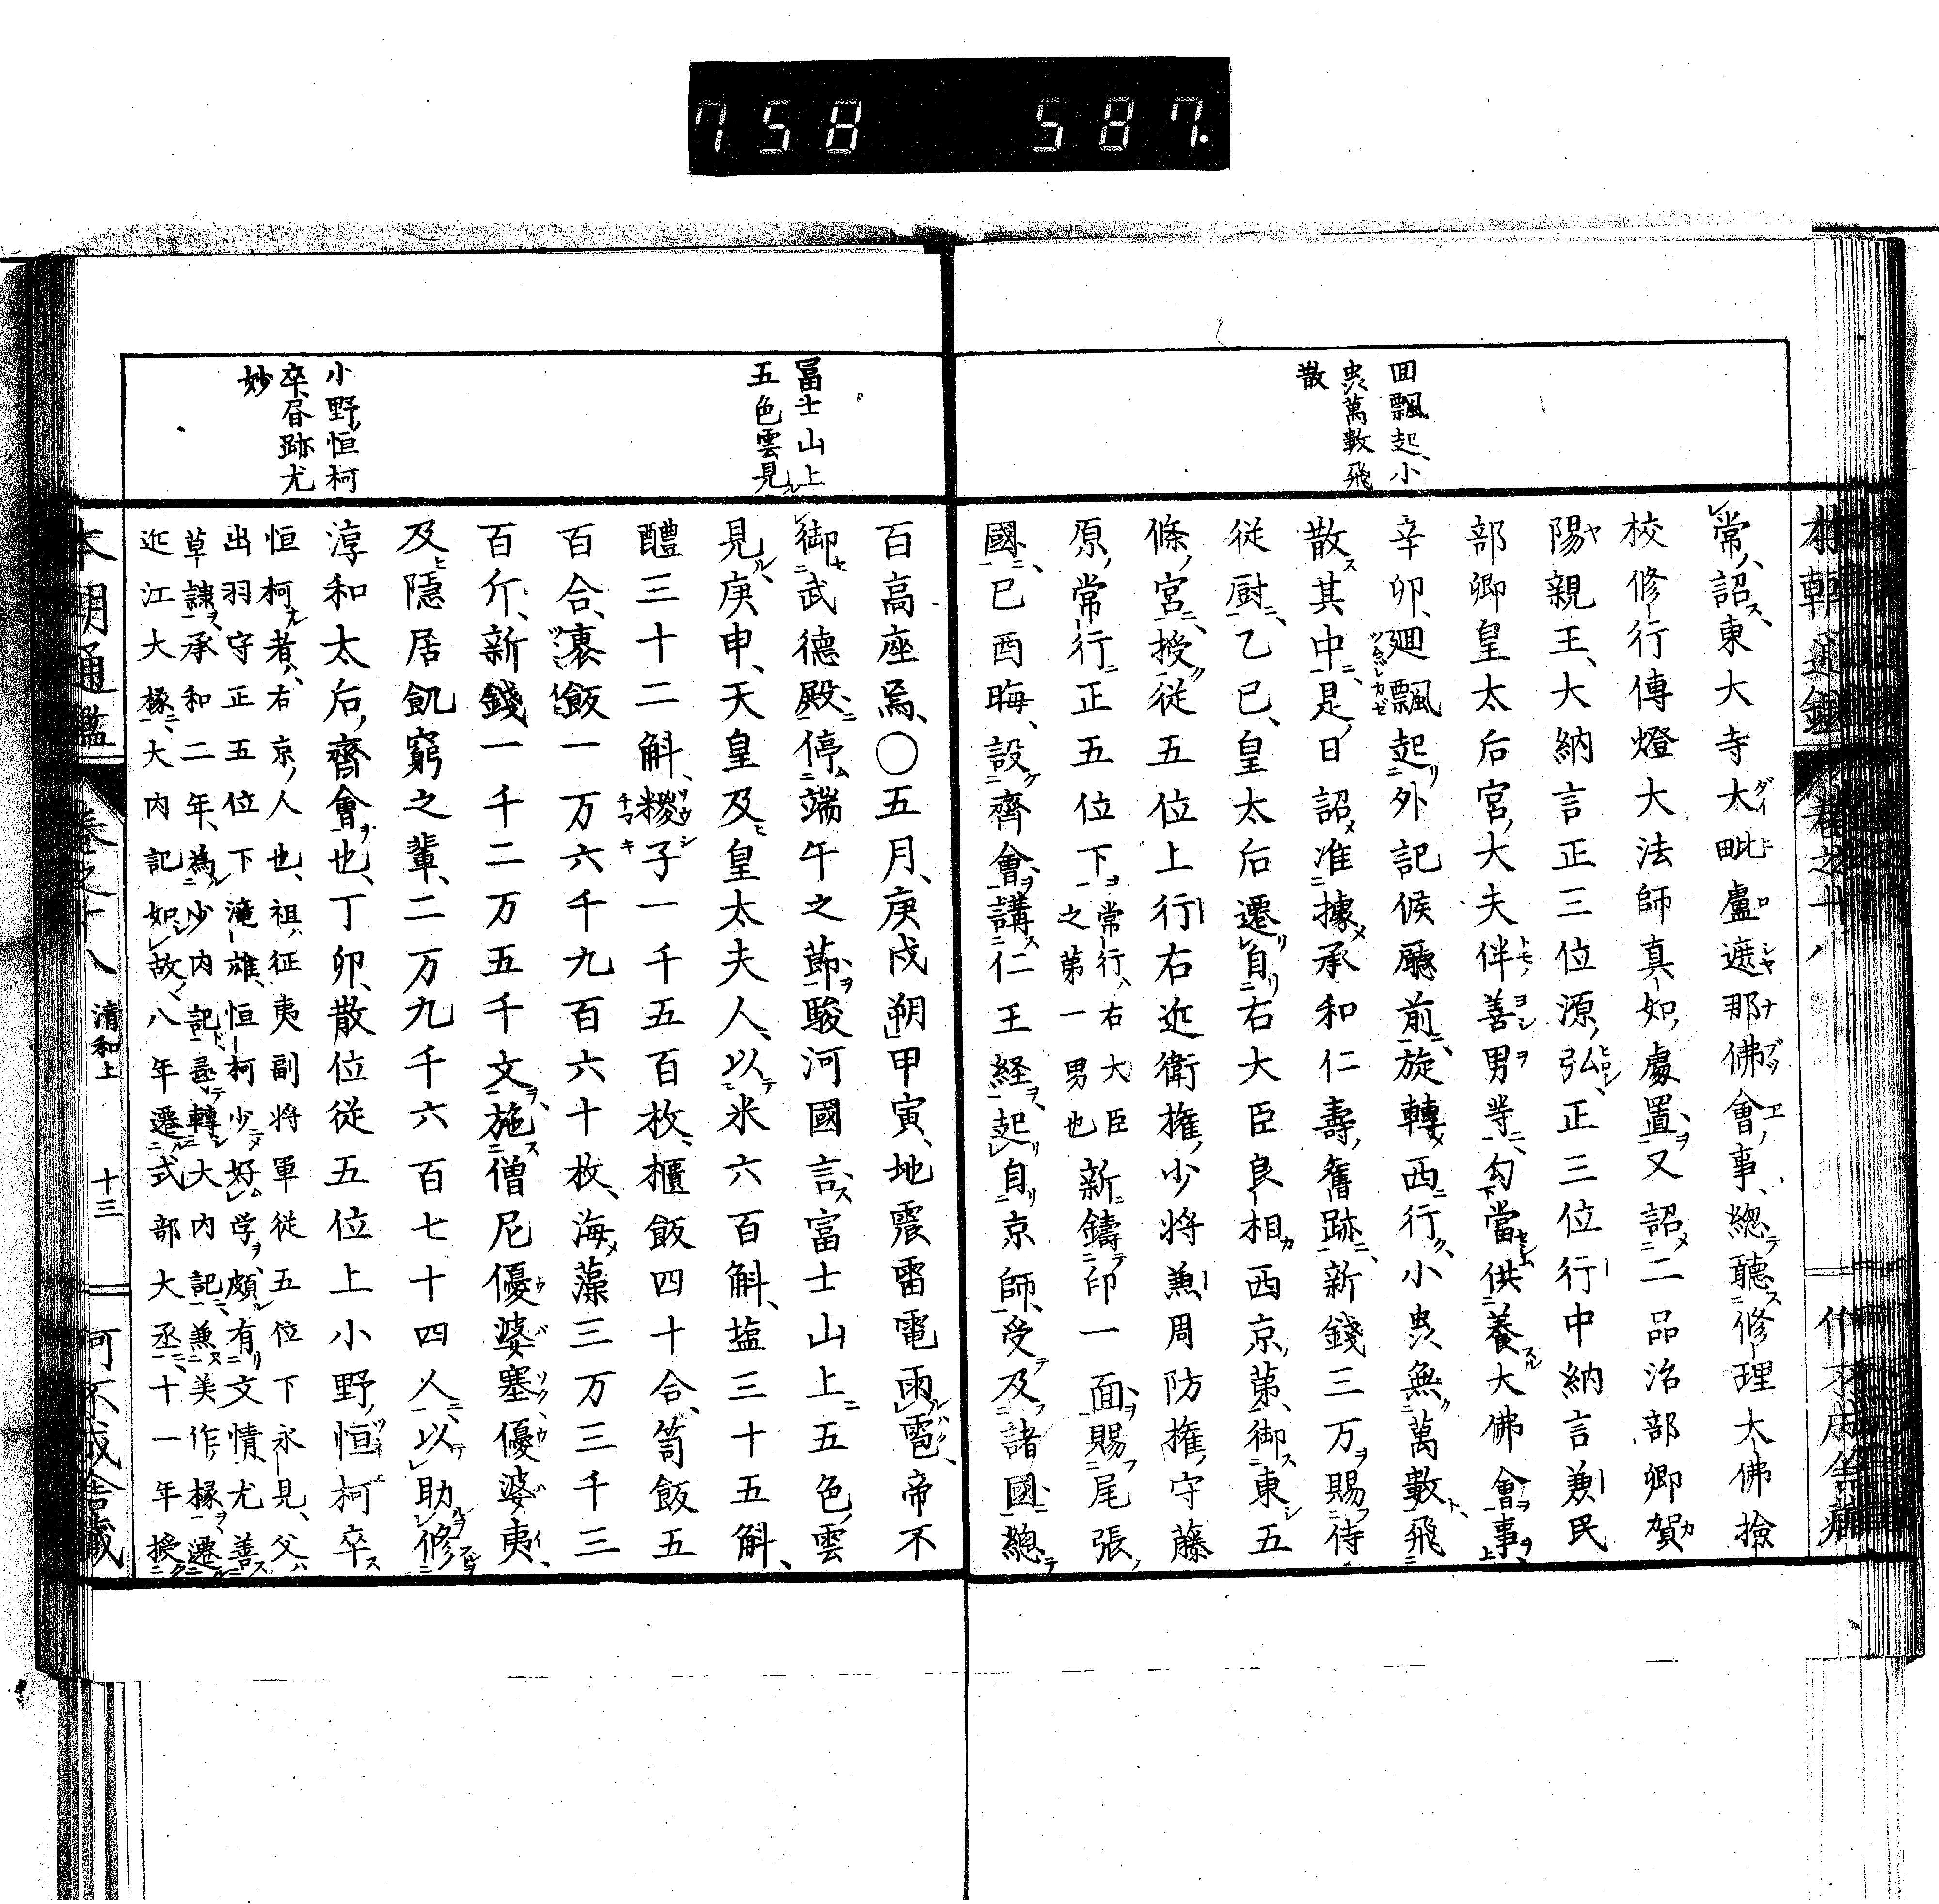 758 587.
回飄起、小
虫萬數飛
散
常、詔東大寺大毗盧遮那佛會事、總聽修理大佛撿
校修行傳燈大法師真如處置又詔二品治部卿賀
陽親王、大納言正三位源弘正三位行中納言兼民
部卿皇太后宮大夫伴善男等勾當供養大佛會事、
辛卯、廻飄起外記候廳前、旋轉西行、小虫無萬數飛
散其中、是日詔准據承和仁壽舊跡、新錢三万賜侍
従厨、乙巳、皇太后遷自右大臣良相西京第、御東五
條宮、授従五位上行右近衛権少将兼周防権守藤
原常行正五位下常行、右大臣
之第一男也新鑄印一面賜尾張
國、巳酉晦、設齊會講仁王経、起自京師、受及諸國總
百高座焉、〇五月、庚戌朔甲寅、地震雷電雨雹、帝不
御武德殿停端午之莭、駿河國言、富士山上五色雲
見、庚申、天皇及皇太夫人、以米六百斛、塩三十五斛、
醴三十二斛、糉子一千五百枚、櫃飯四十合、笥飯五
百合、裹飯一万六千九百六十枚、海藻三万三千三
百斤、新錢一千二万五千文、施僧尼優婆塞優婆夷、
及隱居飢窮之輩、二万九千六百七十四人、以助修
淳和太后齊會也、丁卯、散位従五位上小野恒柯卒
恒柯者、右京人也、祖征夷副将軍従五位下永見、父
出羽守正五位下滝雄、恒柯少好学、頗有文情、尤善
草隷、承和二年、為少内記、尋轉大内記、兼美作掾、遷
近江大掾、大内記如故、八年遷式部大丞、十一年授
冨士山上
五色雲見
小野恒柯
卒、昏跡尤
妙
本朝通鑑 卷之十八 清和上 十三